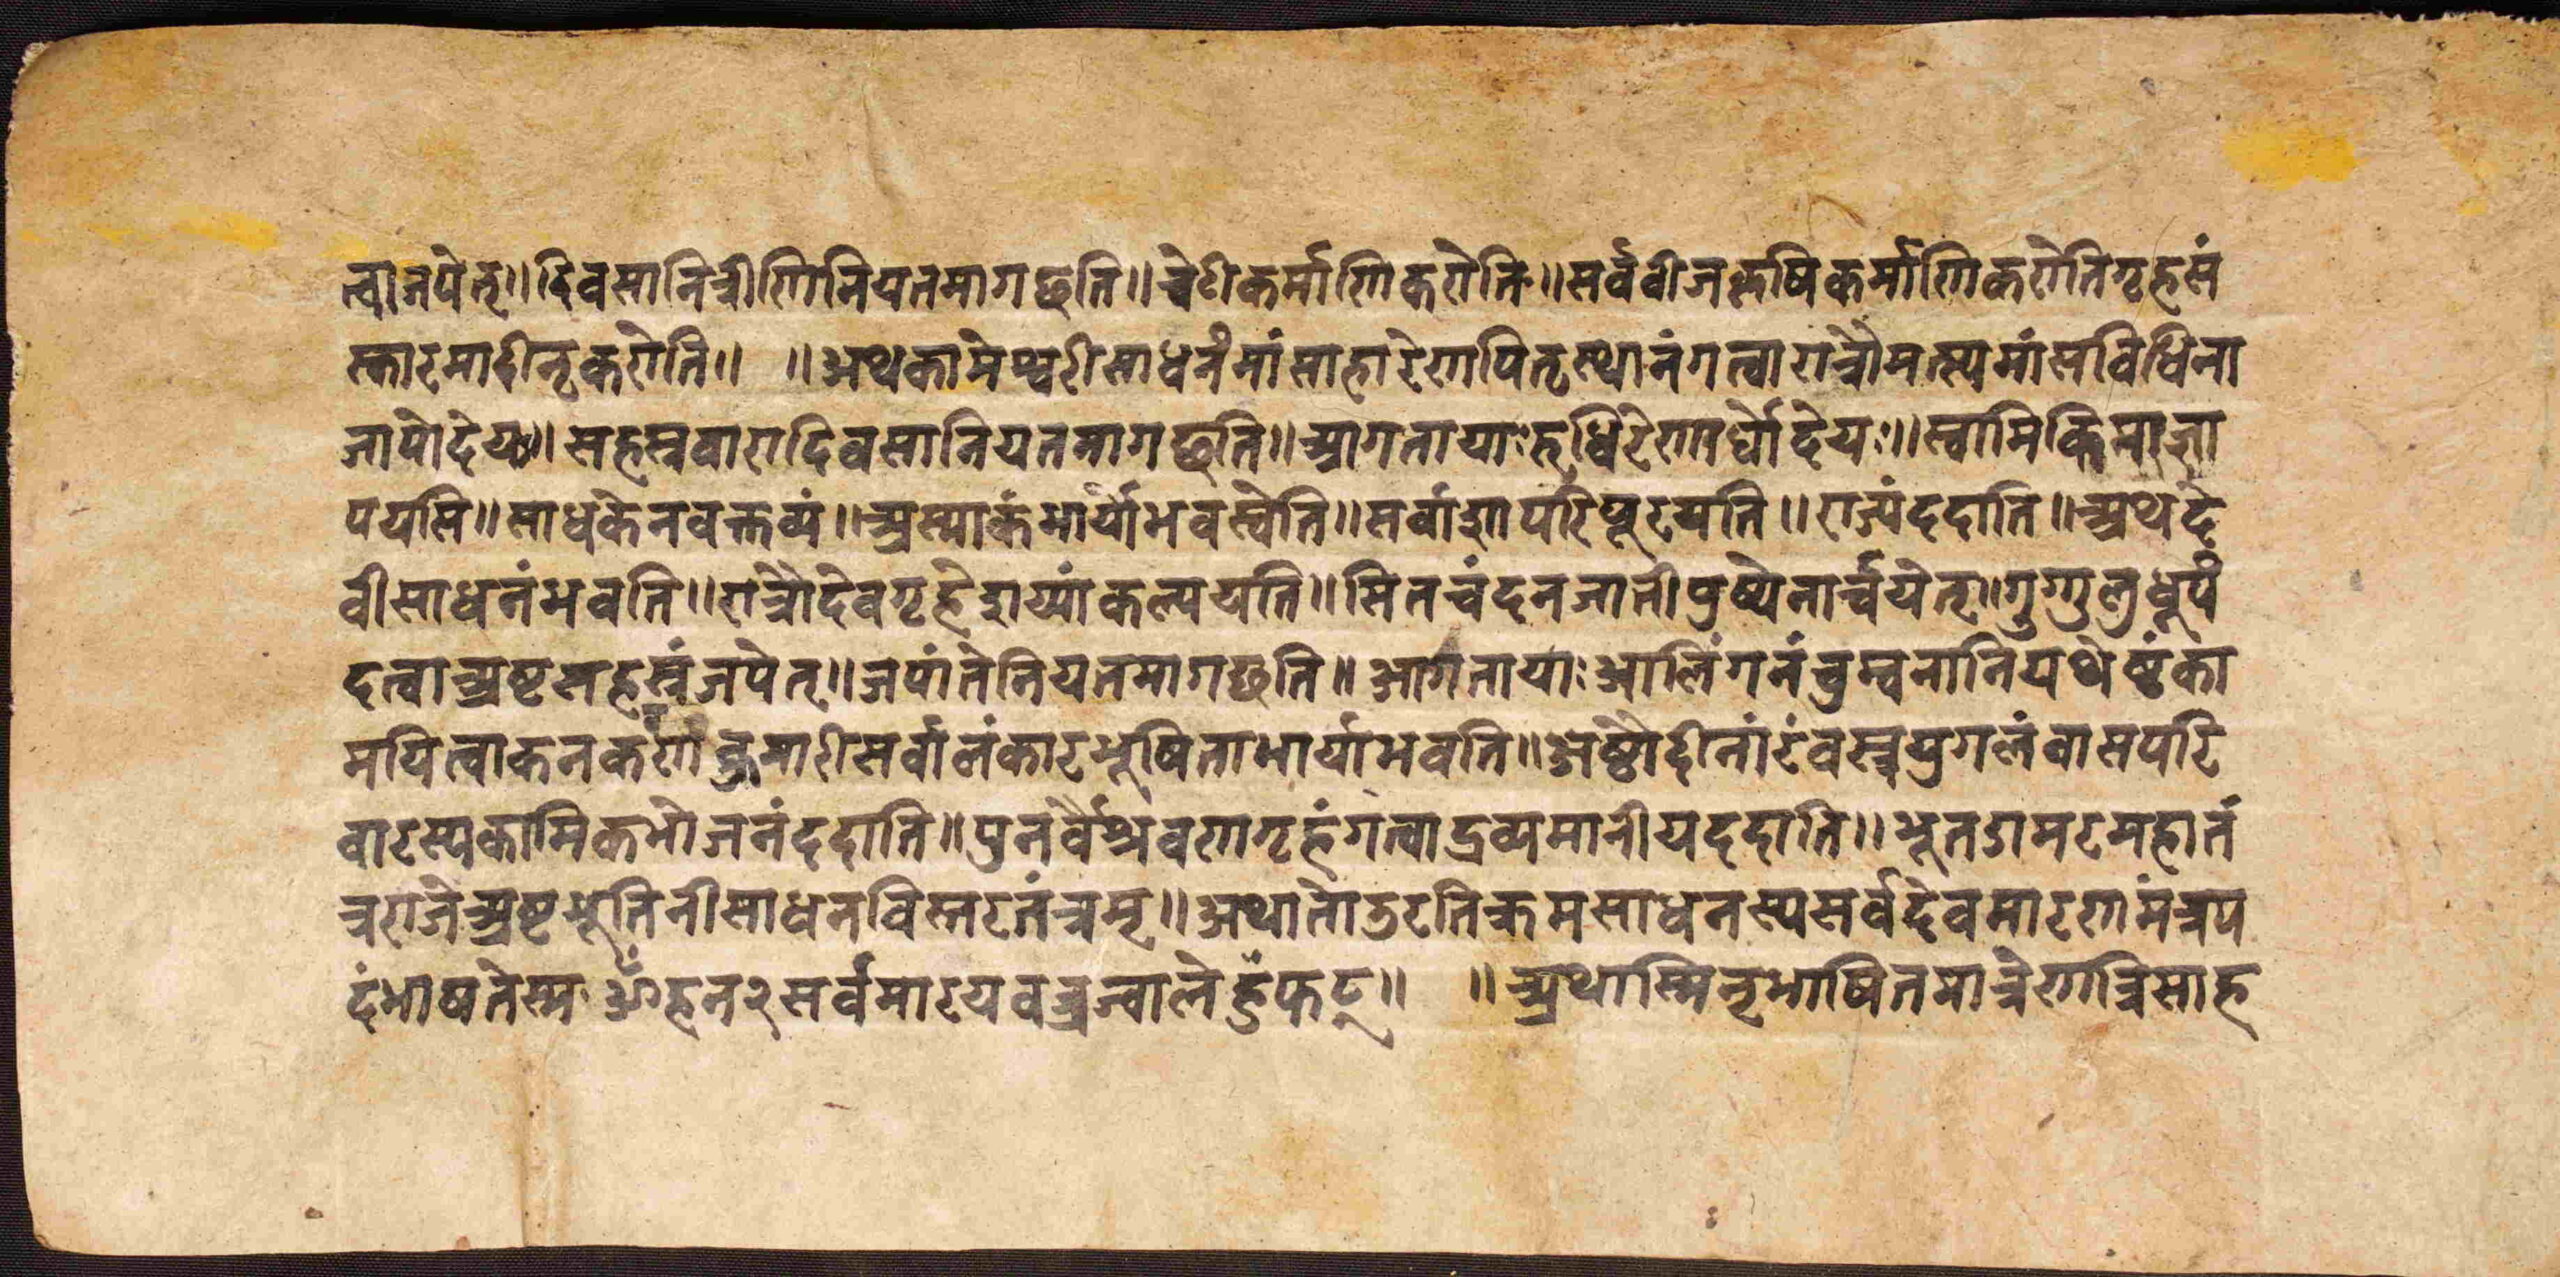 त्वा जपेत्॥ दिवसानि त्रीणि नियतमागछति॥ चेटीकर्माणि करोति॥ सर्वबीजकृषिकर्माणि करोति गृहसं
स्कारमादीन् करोति॥ ॥ अथ कामेश्वरीसाधनं मांसाहारेण पितृस्थानं गत्वा रात्रौ मत्स्यमांसविधिना
जापो देयः॥ सहस्रवारा दिवसा नियतमागछति॥ आगतायाः रुधिरेणार्घो देयः॥ स्वामि किमाज्ञा
पयसि॥ साधकेन वक्तव्यं॥ अस्माकं भार्या भवस्वेति॥ सर्वाशा परिपूरयति॥ राज्यं ददाति॥ अथ दे
वीसाधनं भवति॥ रात्रौ देवगृहे शय्यां कल्पयति॥ सितचंदनजातीपुष्पेनार्चयेत्॥ गुग्गुलुधूपं
दत्वा अष्टसहस्रं जपेत्॥ जपांते नियतमागछति॥ आगतायाः आलिंगनं चुम्बनानि यथेष्टं का
मयित्वा कनकवर्णा कुमारी सर्वालंकारभूषिता भार्या भवति॥ अष्टौ दीनारं वस्त्रयुगलं वा सपरि
वारस्य कामिकभोजनं ददाति॥ पुनर्वैश्रवणगृहं गत्वा द्रव्यमानीय ददाति॥ भूतडामरमहातं
त्रराजे अष्टभूतिनीसाधनविस्तरतंत्रम्॥ अथातो ऽरतिक्रमसाधनस्य सर्वदेवमारणमंत्रप
दं भाषते स्म ॐ हन २ सर्वमारय वज्रज्वाले हुँ फट्॥ ॥ अथास्मिन् भाषितमात्रेण त्रिसाह